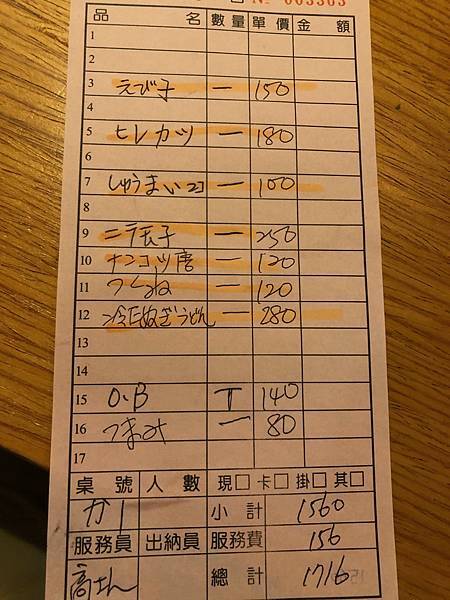 No 003303
品 名 數量 單價 金 額
1
2
3 えび子 一 150
4
5 ヒレカツ 一 180
6
7 しゅうまい2コ 一 100
8
9 一 250
10 ナンコツ唐 一 120
11 つくね 一 120
12 冷たぬきうどん 一 280
13
14
15 O.B T 140
16 つまみ 一 80
17
桌 號 人 數 現□ 卡□ 掛□ 其□
カ1 小 計 1560
服務員 出納員 服務費 156
總 計 1716